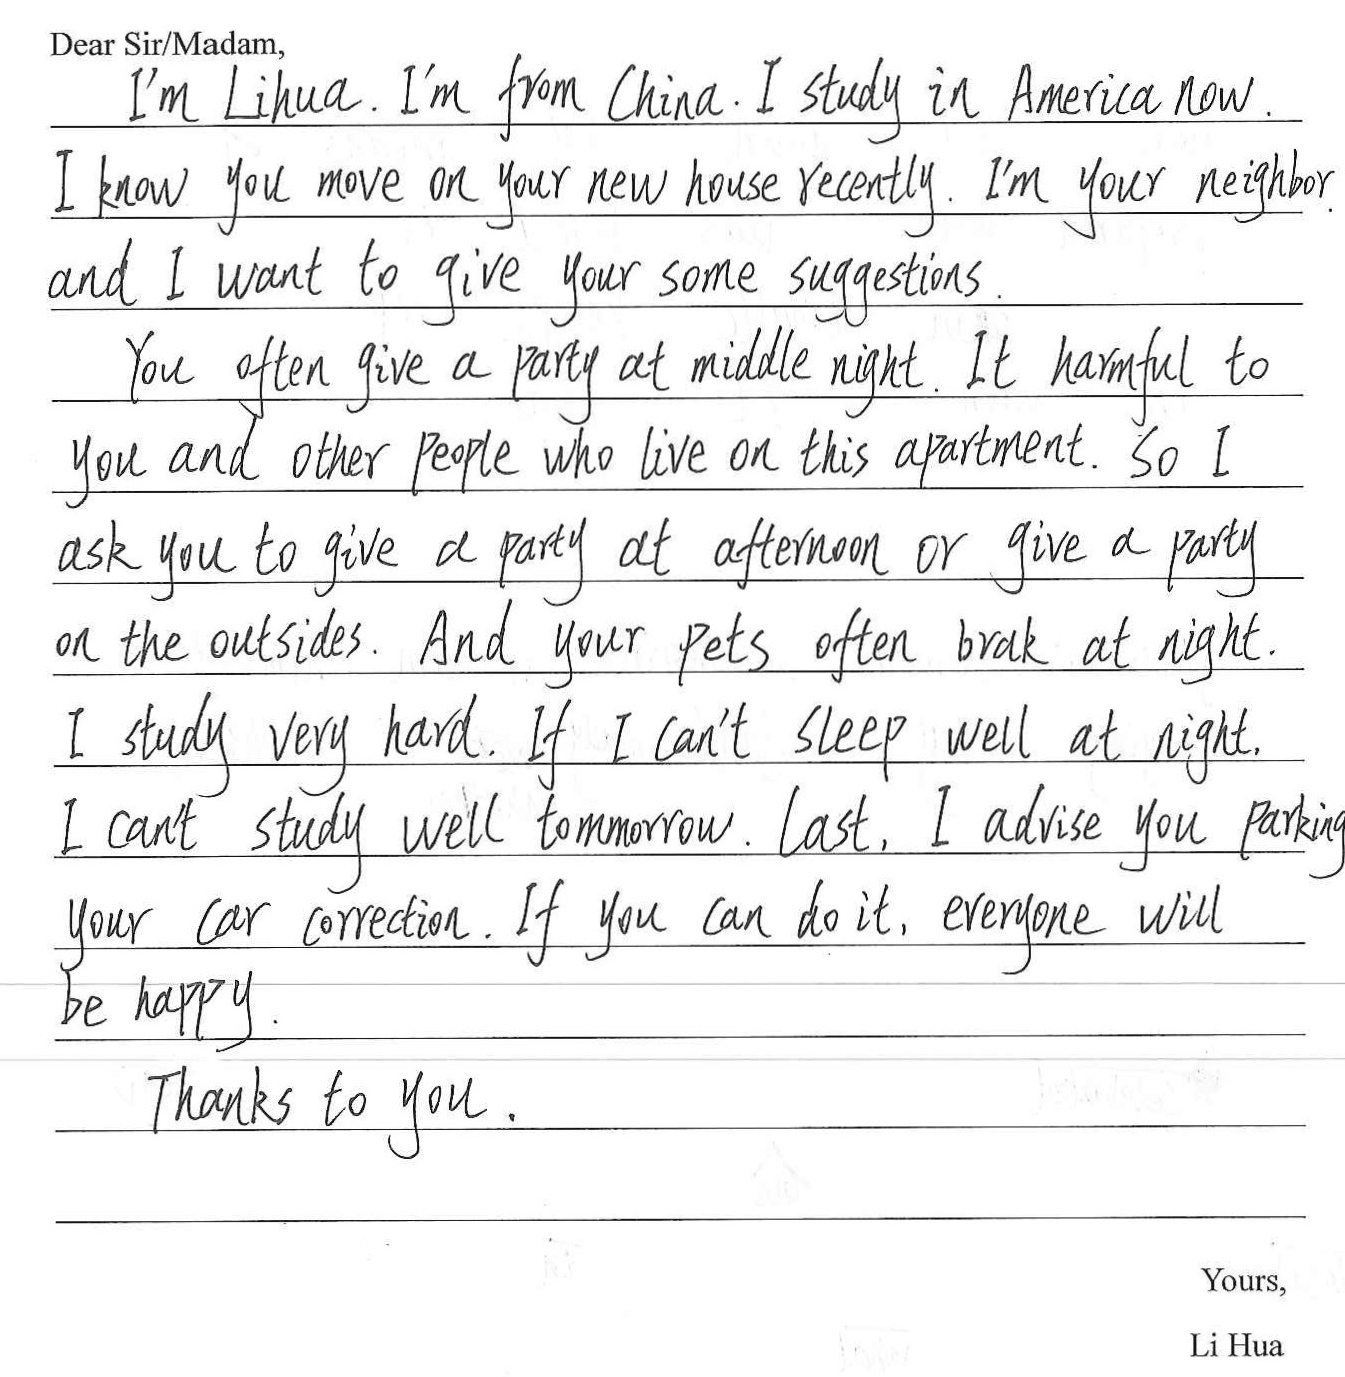 Dear Sir/Madam,
I'm Lihua. I'm from China. I study in America now.
I know you move on your new house recently. I'm your neighbor
and I want to give your some suggestions.
You often give a party at middle night. It harmful to
you and other people who live on this apartment. So I
ask you to give a party at afternoon or give a party
on the outsides. And your pets often brak at night.
I study very hard. If I can't sleep well at night,
I can't study well tommorrow. Last, I advise you parking
your car correction. If you can do it, everyone will
be happy.
Thanks to you.
Yours,
Li Hua